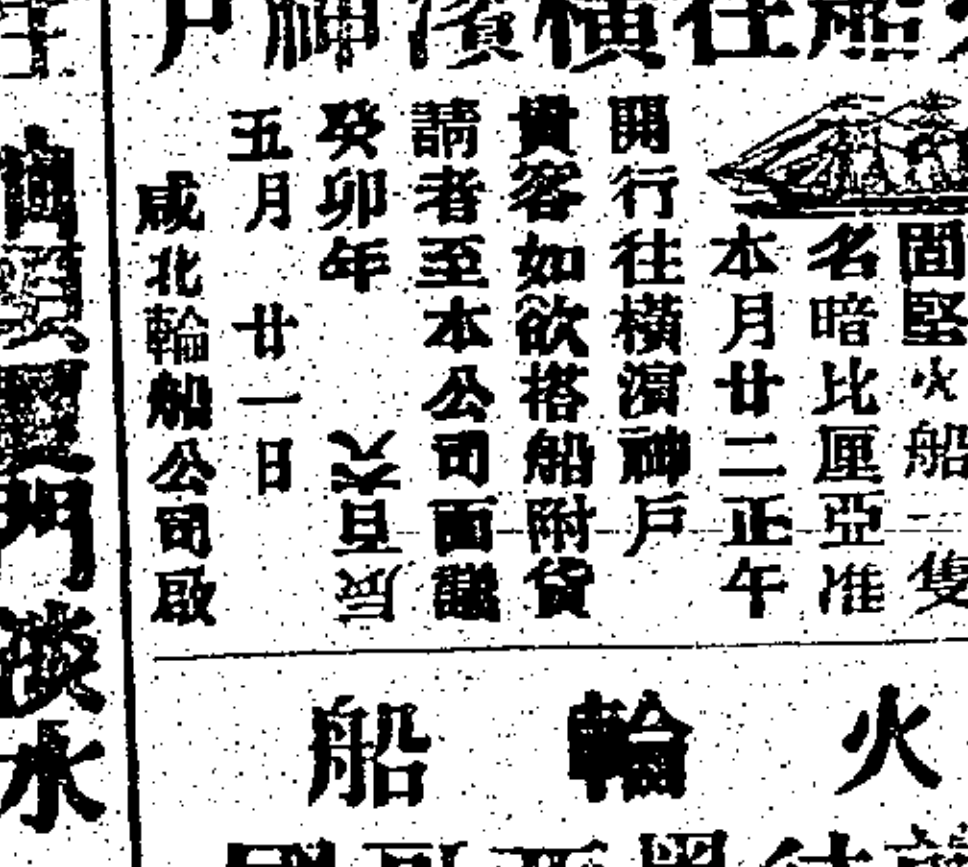 船往橫濱神戶
固堅火船一隻
名暗比厘亞准
本月廿二正午
開行往橫濱神戶
貴客如欲搭船附貨
請者至本公司面議
癸卯年
五月廿一日
咸北輪船公司啟
火輪船
門淡水